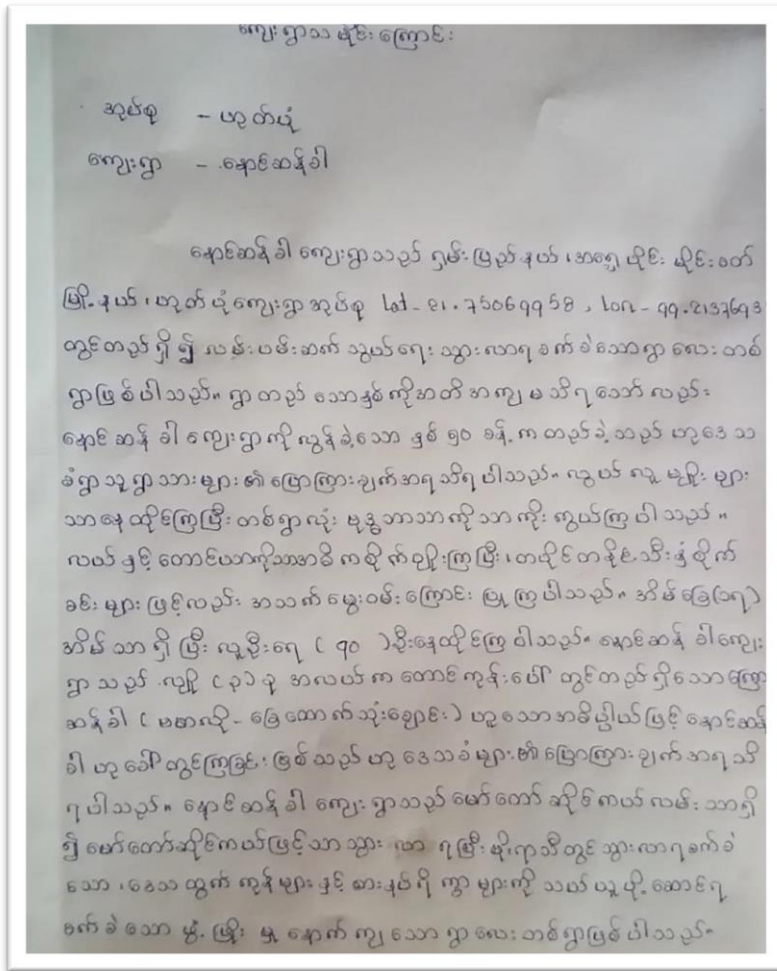 ကျေးရွာသမိုင်းကြောင်း
အုပ်စု - ဟုတ်ပုံ
ကျေးရွာ - နောင်ဆန်ခါ
နောင်ဆန်ခါ ကျေးရွာသည် ရှမ်းပြည်နယ်၊ အရှေ့ပိုင်း မိုင်းခတ်
မြို့နယ်၊ ဟုတ်ပုံကျေးရွာအုပ်စု Lat - 21.75069958, Lon - 99.2137693
တွင်တည်ရှိ၍ လမ်းပမ်းဆက်သွယ်ရေး သွားလာရခက်ခဲသောရွာလေးတစ်
ရွာဖြစ်ပါသည်။ ရွာတည်သောနှစ်ကိုအတိအကျမသိရသော်လည်း
နောင်ဆန်ခါကျေးရွာကိုလွန်ခဲ့သော နှစ် ၅၀ ခန့်ကတည်ခဲ့သည် ဟုဒေသ
ခံရွာသူရွာသားများ၏ပြောကြားချက်အရသိရပါသည်။ လွယ်လူမျိုးများ
သာနေထိုင်ကြပြီးတစ်ရွာလုံး ဗုဒ္ဓဘာသာကိုသာကိုးကွယ်ကြပါသည်။
လယ်နှင့်တောင်ယာကိုသာအဓိကစိုက်ပျိုးကြပြီး၊ တပိုင်တနိုင်သီးနှံစိုက်
ခင်းများဖြင့်လည်း အသက်မွေးဝမ်းကြောင်းပြုကြပါသည်။ အိမ်ခြေ(၁၇)
အိမ်သာရှိပြီးလူဦးရေ ( ၇၀ )ဦးနေထိုင်ကြပါသည်။ နောင်ဆန်ခါကျေး
ရွာသည် လျှို(၃)ခု အလယ်ကတောင်ကုန်းပေါ်တွင်တည်ရှိသောကြော
ဆန်ခါ (ဗမာလို - ခြေထောက်သုံးချောင်း) ဟူသောအဓိပ္ပါယ်ဖြင့်နောင်ဆန်
ခါဟုခေါ်တွင်ကြခြင်းဖြစ်သည်ဟုဒေသခံများ၏ပြောကြားချက်အရသိ
ရပါသည်။ နောင်ဆန်ခါကျေးရွာသည်မော်တော်ဆိုင်ကယ်လမ်းသာရှိ
၍မော်တော်ဆိုင်ကယ်ဖြင့်သာသွားလာရပြီးမိုးရာသီတွင်သွားလာရခက်ခဲ
သော၊ ဒေသထွက်ကုန်များနှင့်စားနပ်ရိက္ခာများကိုသယ်ယူပို့ဆောင်ရ
ခက်ခဲသော ဖွံ့ဖြိုးမှုနောက်ကျသောရွာလေးတစ်ရွာဖြစ်ပါသည်။